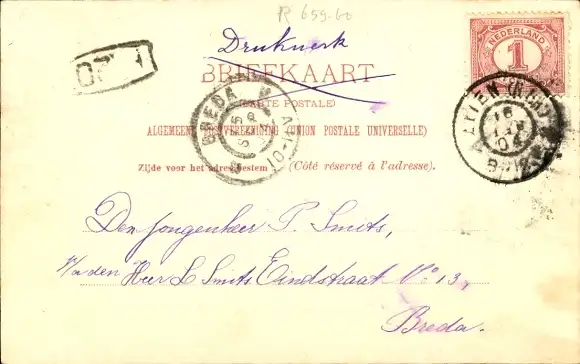 R 659-60
Drukwerk
NEDERLAND
1
BRIEFKAART
(CARTE POSTALE)
ALGEMEENE POSTVEREENIGING (UNION POSTALE UNIVERSELLE)
Zijde voor het adres bestemd (Côté réservé à l'adresse).
BREDA
Den Jongenheer P. Smits,
V/a den Heer L Smits Eindstraat No 13,
Breda.